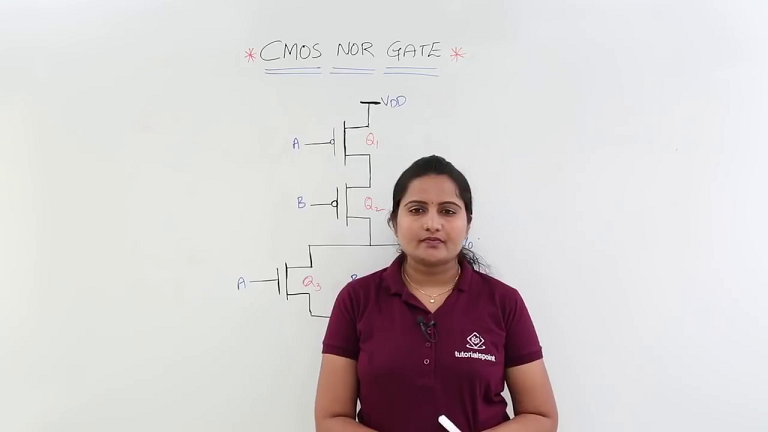 * CMOS NOR GATE *
VDD
A
Q1
B
Q2
A
Q3
B
tutorialspoint